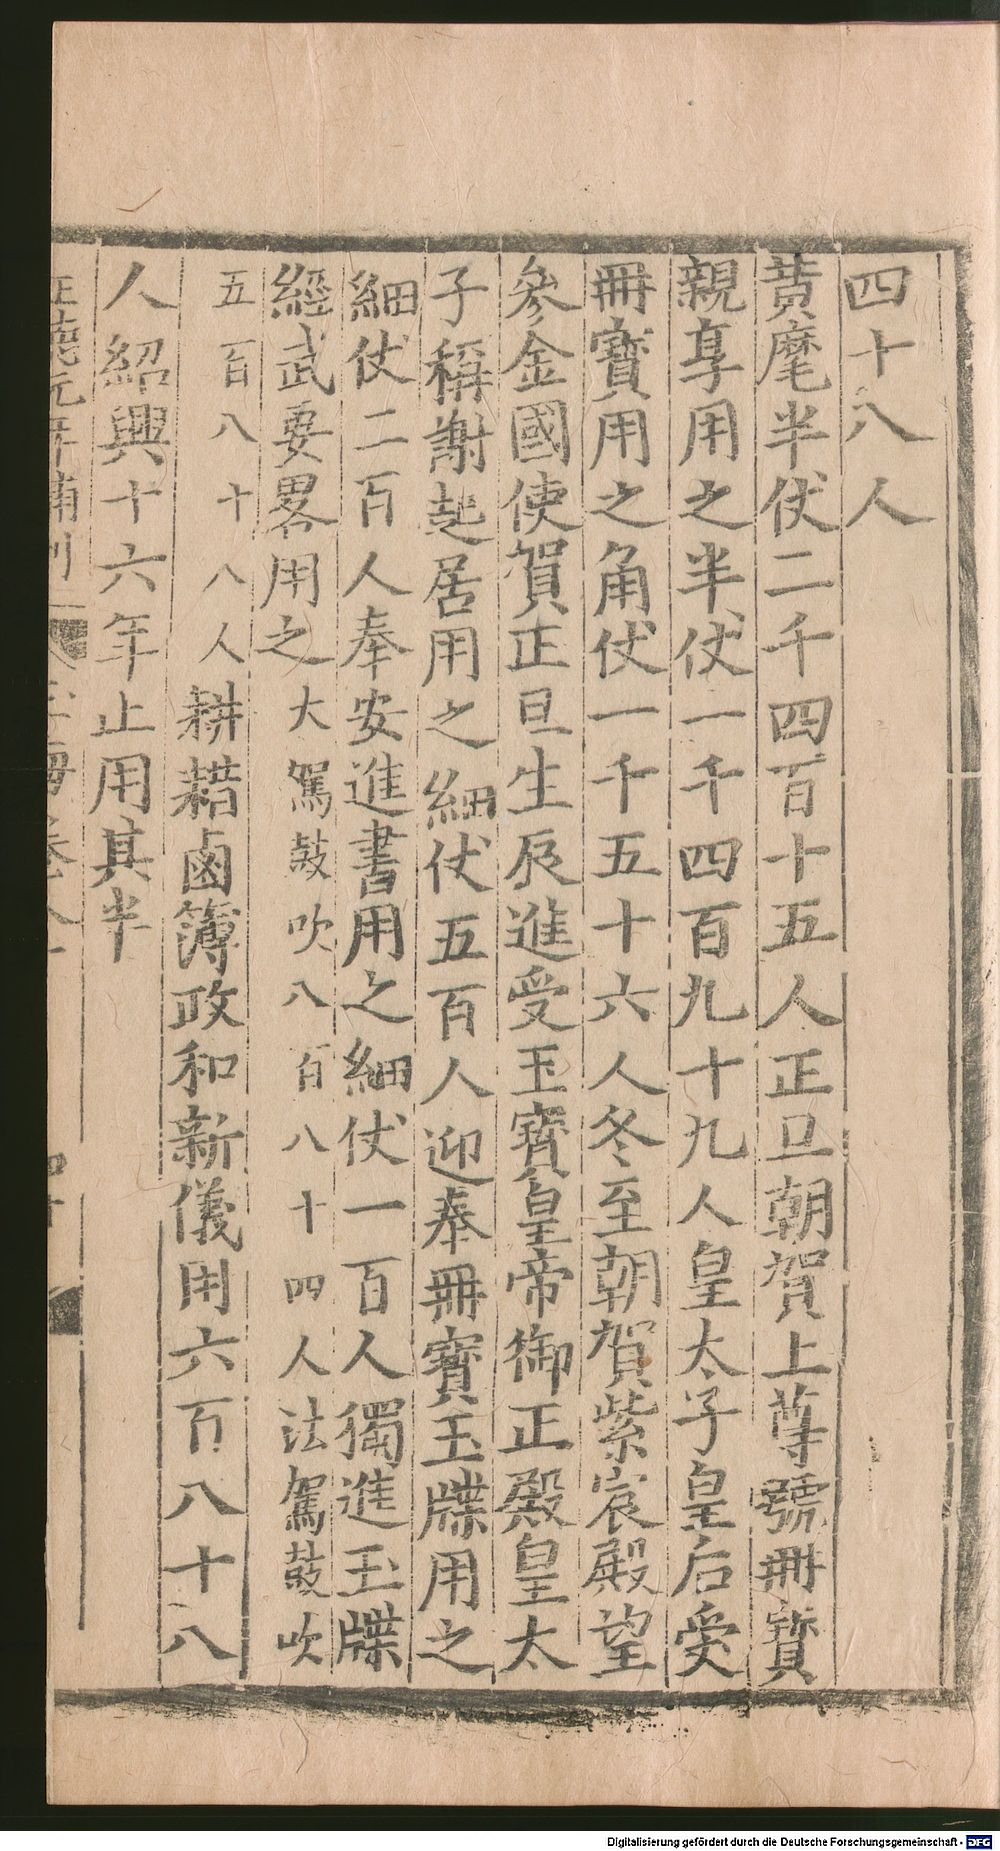 四十八人
黄麾半仗二千四百十五人正旦朝賀上尊號冊寶
親享用之半仗一千四百九十九人皇太子皇后受
冊寶用之角仗一千五十六人冬至朝賀紫宸殿望
參金國使賀正旦生辰進受玉寶皇帝御正殿皇太
子稱謝起居用之細仗五百人迎奉冊寶玉牒用之
細仗二百人奉安進書用之細仗一百人獨進玉牒
經武要畧用之大駕鼓吹八百八十四人法駕鼓吹
五百八十八人耕耤鹵簿政和新儀用六百八十八
人紹興十六年止用其半
正德元年補刊
Digitalisierung gefördert durch die Deutsche Forschungsgemeinschaft - DFG